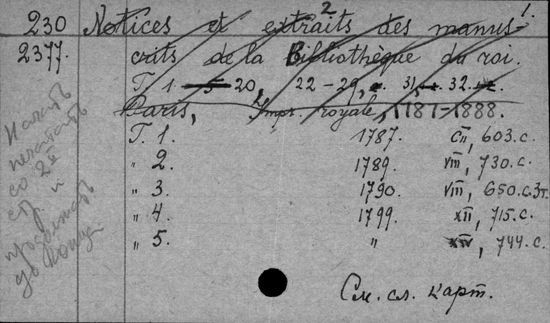 230 Notices et extraits des manus-
2 1.
2377. crits de la Bibliothèque du roi.
T. 1 — 5 20, 22-29, 31, 32.
Paris, Impr. royale, 1787-1888.
T. 1. 1787. CII, 603.c.
„ 2. 1789. VIII, 730.c.
„ 3. 1790. VIII, 650.c.3т.
„ 4. 1799. XII, 715.c.
„ 5. „ XIV, 744.c.
Начать
печатать
со 2й
и
до конца
См. сл. карт.